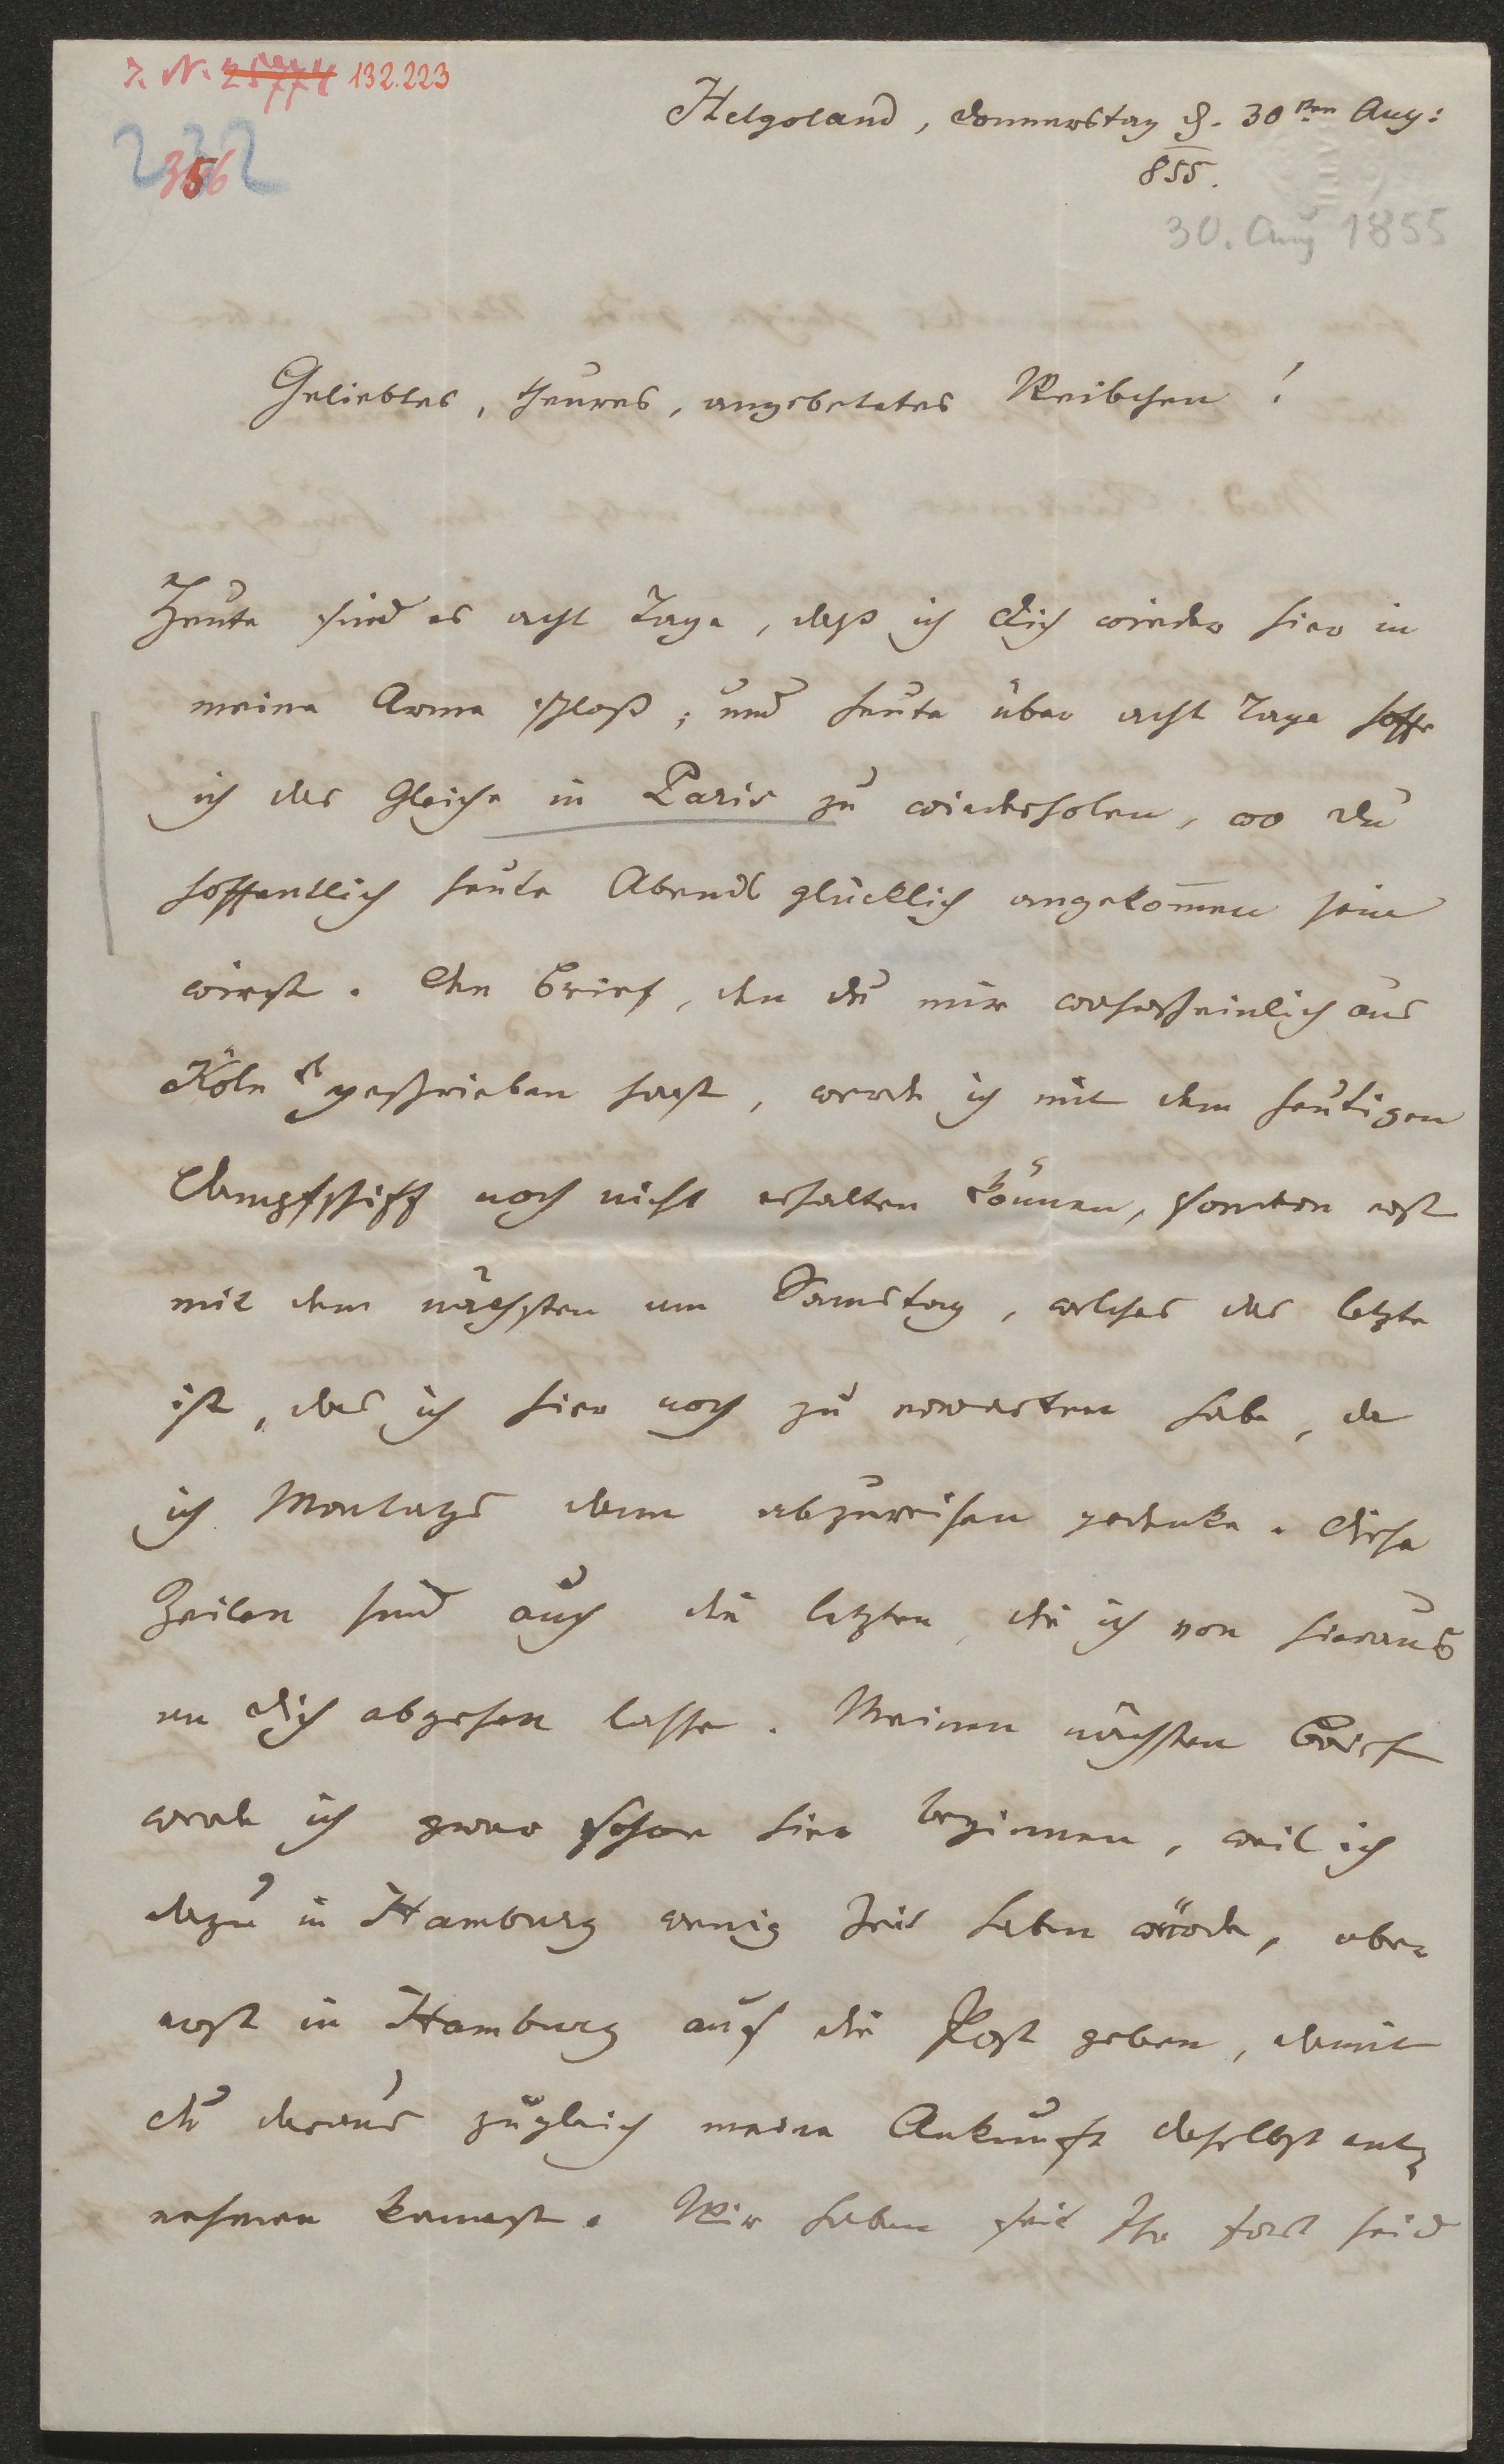 J. N. 25774 132.223
232
356
Helgoland, Donnerstag d. 30sten Aug:
855.
30. Aug 1855
Geliebtes, theures, angebetetes Weibchen!
Heute sind es acht Tage, daß ich Dich wieder hier in
meine Arme schloß; und heute über acht Tage hoffe
ich das Gleiche in Paris zu wiederholen, wo Du
hoffentlich heute Abends glücklich angekom̅en sein
wirst. Den Brief, den Du mir wahrscheinlich aus
Köln geschrieben hast, werde ich mit dem heutigen
Dampfschiff noch nicht erhalten können, sondern erst
mit dem nächsten am Samstag, welches das letzte
ist, das ich hier noch zu erwarten habe, da
ich Montags dann abzureisen gedenke. Diese
Zeilen sind auch die letzten, die ich von hieraus
an Dich abgehen lasse. Meinen nächsten Brief
werde ich zwar schon hier beginnen, weil ich
dazu in Hamburg wenig Zeit haben würde, aber
erst in Hamburg auf die Post geben, damit
Du daraus zugleich meine Ankunft daselbst ent-
nehmen kannst. Wir haben seit Ihr fort seid